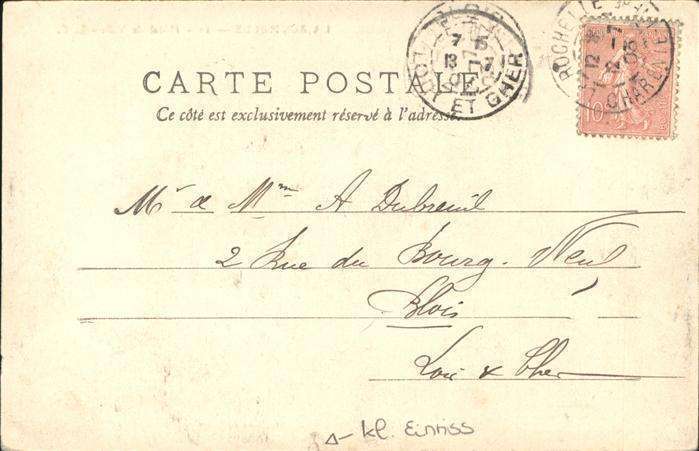 CARTE POSTALE
Ce côté est exclusivement réservé à l'adresse.
BLOIS
7 15
13 -7
LOIR ET CHER
ROCHELLE
CHAR
10
Mr & Mme A Dubreuil
2 Rue du Bourg-Neuf
Blois
Loir & Cher
kl. Einriss